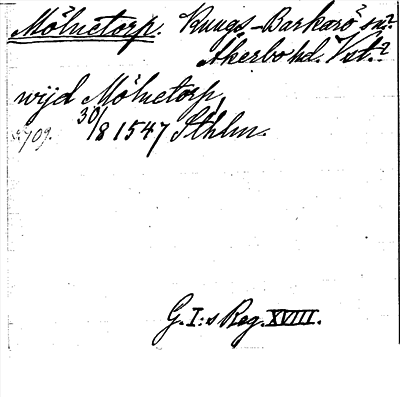 Mölnetorp. Kungs-Barkarö sn?
Åkerbo hd. Vstm?
wijd Mölnetorp,
s. 709. 30/8 1547 Sthlm.
G. I:s Reg. XVIII.